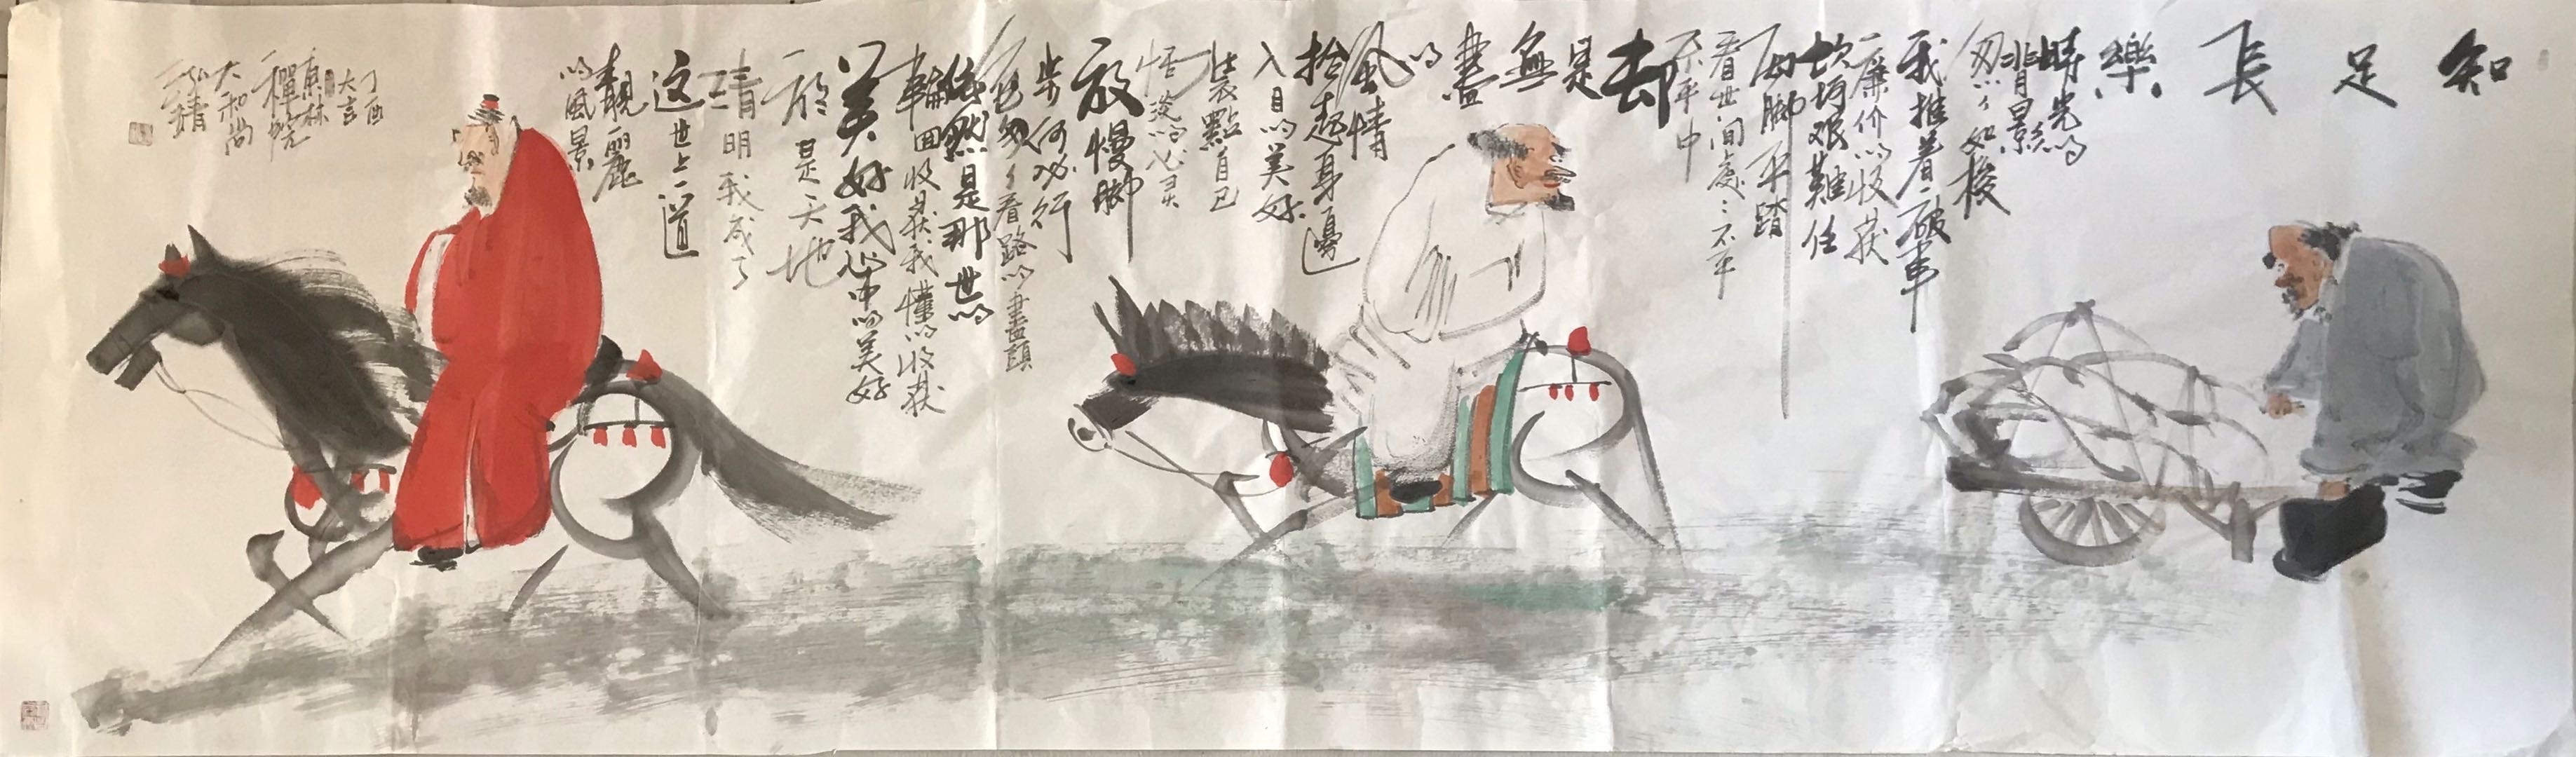 知足長樂
時光的
背影
匆匆如梭
我推着一破車
廉价的收获
坎坷艰難任
两脚平踏
看世间處處不平
不平中
却
是
無
盡
的
風情
拾起身邊
入目的美好
装點自己
放慢脚
步何必行
色匆匆看路的盡頭
依然是那世的
輪回收获我懂的收获
美好我心中的美好
於是天地
清明我成了
这世上一道
靓麗
的風景
丁酉
大言
東林
禪院
大和尚